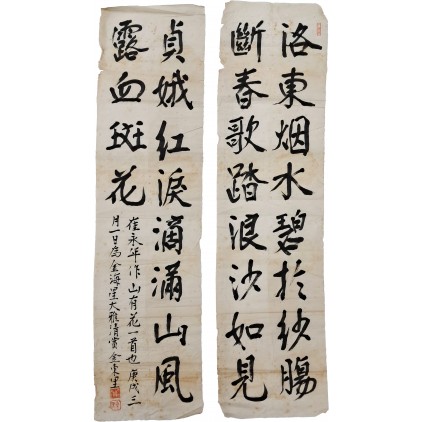 洛東烟水碧於紗腸
斷春歌踏浪沙如見
貞娥紅淚滴滿山風
露血斑花
崔永年作山有花一首也庚戌三
月一日為金海星大雅清賞金東里